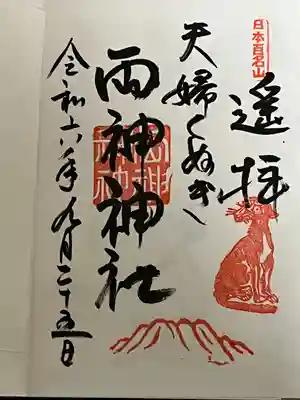 日本百名山
遙拝
夫婦くぬぎ
両神神社
令和六年九月二十五日